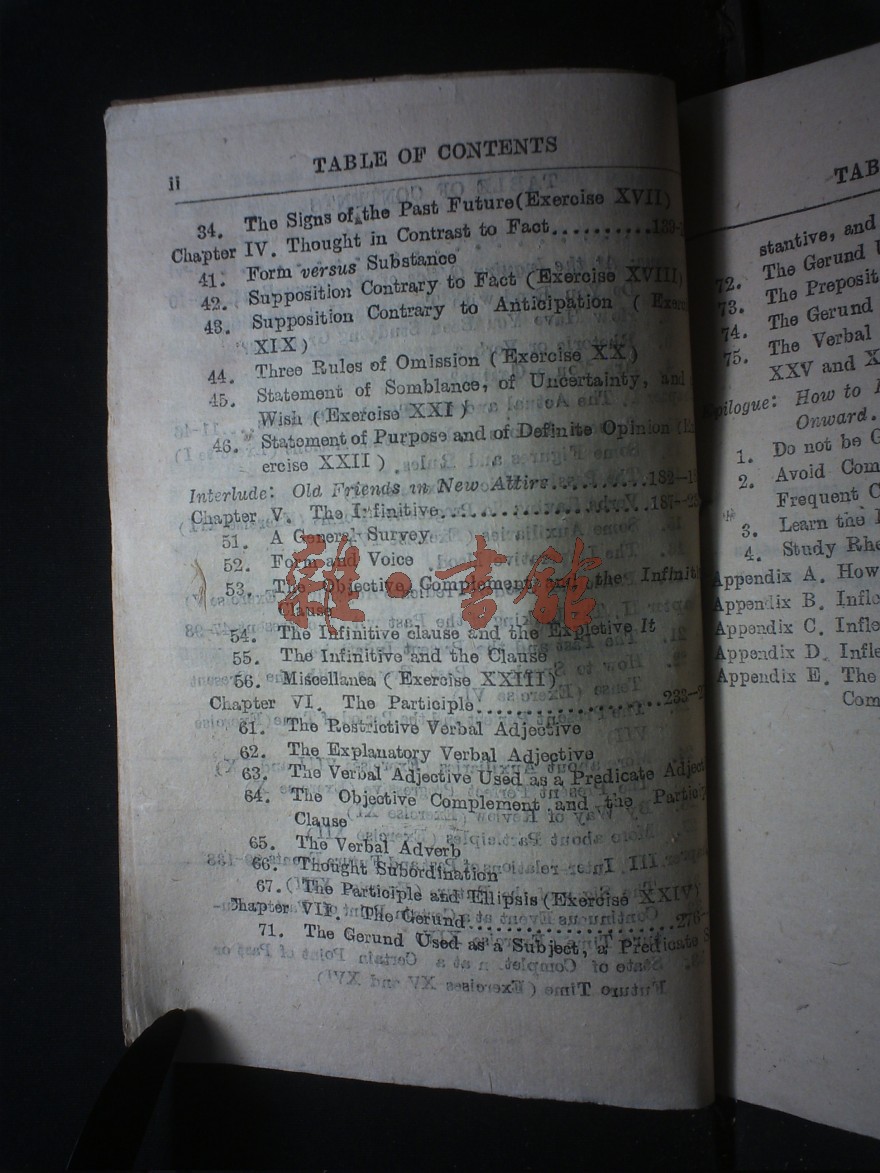 ii
TABLE OF CONTENTS
34. The Signs of the Past Future (Exercise XVII)
Chapter IV. Thought in Contrast to Fact..........139-
41. Form versus Substance
42. Supposition Contrary to Fact (Exercise XVIII)
43. Supposition Contrary to Anticipation (Exer
XIX)
44. Three Rules of Omission (Exercise XX)
45. Statement of Somblance, of Uncertainty, and
Wish (Exercise XXI)
46. Statement of Purpose and of Definite Opinion (Ex
ercise XXII)
Interlude: Old Friends in New Attire..........182-1
Chapter V. The Infinitive....................187-2
51. A General Survey
52. Form and Voice
53. The Objective Complement and the Infinit
Clause
54. The Infinitive clause and the Expletive It
55. The Infinitive and the Clause
56. Miscellanea (Exercise XXIII)
Chapter VI. The Participle..................233-2
61. The Restrictive Verbal Adjective
62. The Explanatory Verbal Adjective
63. The Verbal Adjective Used as a Predicate Adject
64. The Objective Complement and the Partic
Clause
65. The Verbal Adverb
66. Thought Subordination
67. (The Participle and Ellipsis (Exercise XXIV)
Chapter VII. The Gerund....................276-
71. The Gerund Used as a Subject, a Predicate S
TAB
stantive, and
72. The Gerund U
73. The Preposit
74. The Gerund
75. The Verbal
XXV and X
pilogue: How to
Onward.
1. Do not be G
2. Avoid Com
Frequent C
3. Learn the
4. Study Rhe
Appendix A. How
Appendix B. Infle
Appendix C. Infle
Appendix D. Infle
Appendix E. The
Com
雜·書館